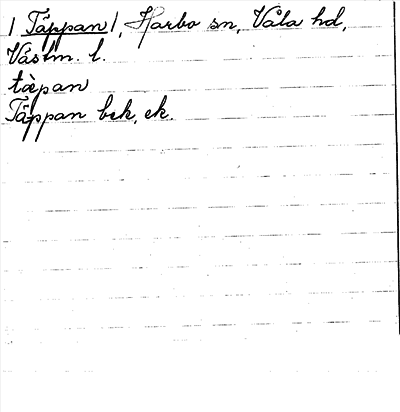 /Täppan/, Harbo sn, Våla hd,
Västm. l.
tæ̀pan
Täppan bek, ek.